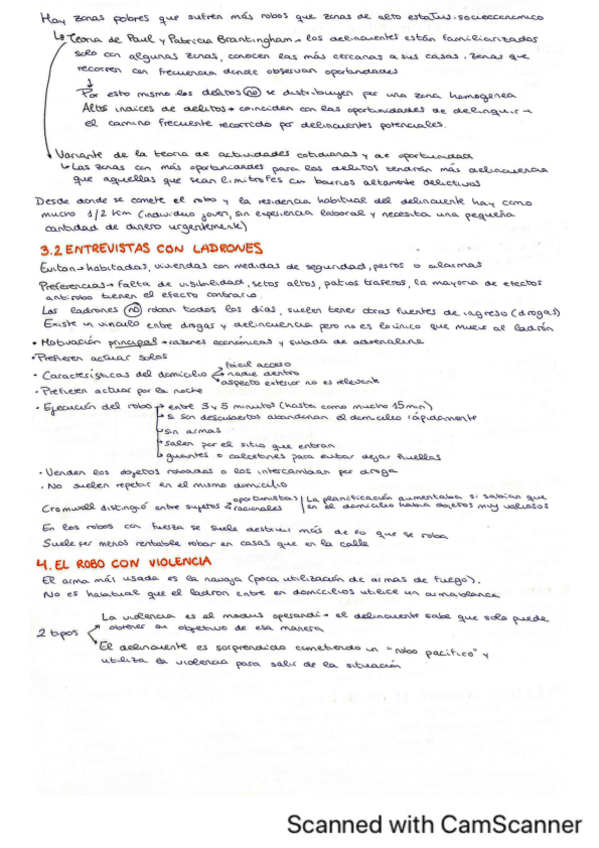 Hay zonas pobres que sufren más robos que zonas de alto estatus socioeconómico
↳ Teoría de Paul y Patricia Brantingham → los delincuentes están familiarizados
solo con algunas zonas, conocen las más cercanas a sus casas, zonas que
recorren con frecuencia donde observan oportunidades
↓
Por esto mismo los delitos no se distribuyen por una zona homogenea
Altos índices de delitos → coinciden con las oportunidades de delinquir →
el camino frecuente recorrido por delincuentes potenciales.
Variante de la teoría de actividades cotidianas y de oportunidad
↳ Las zonas con más oportunidades para los delitos tendrán más delincuencia
que aquellas que sean limítrofes con barrios altamente delictivos
Desde donde se comete el robo y la residencia habitual del delincuente hay como
mucho 1/2 km (individuo joven, sin experiencia laboral y necesita una pequeña
cantidad de dinero urgentemente)
3.2 ENTREVISTAS CON LADRONES
Evitan → habitadas, viviendas con medidas de seguridad, perros o alarmas
Preferencias → falta de visibilidad, setos altos, patios traseros, la mayoría de efectos
antirrobo tienen el efecto contrario.
Los ladrones no roban todos los días, suelen tener otras fuentes de ingreso (drogas)
Existe un vínculo entre drogas y delincuencia pero no es lo único que mueve al ladrón
• Motivación principal → razones económicas y subida de adrenalina
• Prefieren actuar solos
• Características del domicilio → fácil acceso
→ nadie dentro
→ aspecto exterior no es relevante
• Prefieren actuar por la noche
• Ejecución del robo → entre 3 y 5 minutos (hasta como mucho 15min)
→ si son descubiertos abandonan el domicilio rápidamente
→ sin armas
→ salen por el sitio que entran
→ guantes o calcetines para evitar dejar huellas
• Venden los objetos robados o los intercambian por droga
• No suelen repetir en el mismo domicilio
Cromwell distinguió entre sujetos → oportunistas | La planificación aumentaba si sabían que
→ racionales | en el domicilio había objetos muy valiosos
En los robos con fuerza se suele destruir más de lo que se roba
Suele ser menos rentable robar en casas que en la calle
4. EL ROBO CON VIOLENCIA
El arma más usada es la navaja (poca utilización de armas de fuego).
No es habitual que el ladrón entre en domicilios utilice un arma blanca
La violencia es el modus operandi → el delincuente sabe que solo puede
obtener su objetivo de esa manera
2 tipos
El delincuente es sorprendido cometiendo un "robo pacífico" y
utiliza la violencia para salir de la situación
Scanned with CamScanner